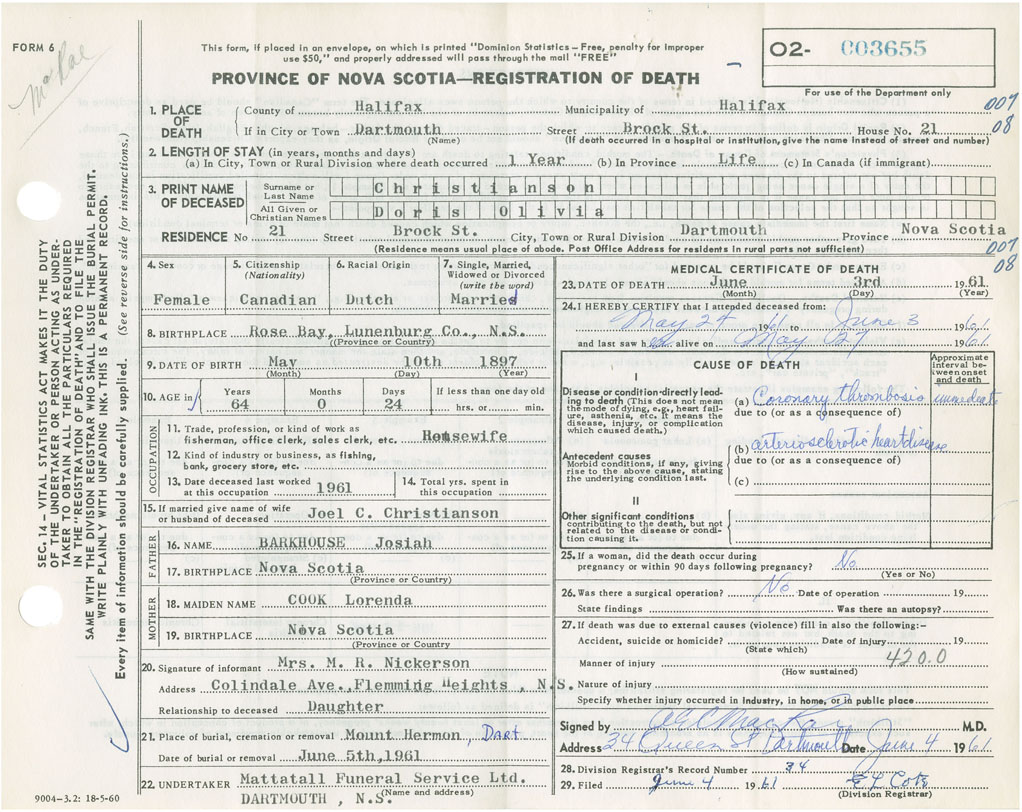 FORM 6
McRae
This form, if placed in an envelope, on which is printed "Dominion Statistics – Free, penalty for improper
use $50," and properly addressed will pass through the mail "FREE"
PROVINCE OF NOVA SCOTIA—REGISTRATION OF DEATH
02- 003655
For use of the Department only
1. PLACE OF DEATH County of Halifax Municipality of Halifax 007
If in City or Town Dartmouth Street Brock St. House No. 21 08
(Name) (If death occurred in a hospital or institution, give the name instead of street and number)
2. LENGTH OF STAY (in years, months and days)
(a) In City, Town or Rural Division where death occurred 1 Year (b) In Province Life (c) In Canada (if immigrant)
3. PRINT NAME OF DECEASED
Surname or Last Name Christianson
All Given or Christian Names Doris Olivia
RESIDENCE No 21 Street Brock St. City, Town or Rural Division Dartmouth Province Nova Scotia
(Residence means usual place of abode. Post Office Address for residents in rural parts not sufficient) 007
08
4. Sex 5. Citizenship (Nationality) 6. Racial Origin 7. Single, Married, Widowed or Divorced (write the word)
Female Canadian Dutch Married
8. BIRTHPLACE Rose Bay, Lunenburg Co., N.S.
(Province or Country)
9. DATE OF BIRTH May 10th 1897
(Month) (Day) (Year)
10. AGE in Years Months Days If less than one day old
64 0 24 hrs. or min.
OCCUPATION
11. Trade, profession, or kind of work as
fisherman, office clerk, sales clerk, etc. Housewife
12. Kind of industry or business, as fishing,
bank, grocery store, etc.
13. Date deceased last worked at this occupation 1961 14. Total yrs. spent in this occupation
15. If married give name of wife
or husband of deceased Joel C. Christianson
FATHER
16. NAME BARKHOUSE Josiah
17. BIRTHPLACE Nova Scotia
(Province or Country)
MOTHER
18. MAIDEN NAME COOK Lorenda
19. BIRTHPLACE Nova Scotia
(Province or Country
20. Signature of informant Mrs. M. R. Nickerson
Address Colindale Ave., Flemming Heights, N.S.
Relationship to deceased Daughter
21. Place of burial, cremation or removal Mount Hermon, Dart
Date of burial or removal June 5th, 1961
22. UNDERTAKER Mattatall Funeral Service Ltd.
(Name and address)
DARTMOUTH, N.S.
MEDICAL CERTIFICATE OF DEATH
23. DATE OF DEATH June 3rd 1961
(Month) (Day) (Year)
24. I HEREBY CERTIFY that I attended deceased from:
May 24 1961 to June 3 1961
and last saw her alive on May 27 1961
CAUSE OF DEATH
Approximate interval between onset and death
I
Disease or condition directly leading to death (This does not mean the mode of dying, e.g., heart failure, asthenia, etc. It means the disease, injury, or complication which caused death.)
(a) Coronary thrombosis immediate
due to (or as a consequence of)
Antecedent causes
Morbid conditions, if any, giving rise to the above cause, stating the underlying condition last.
(b) arteriosclerotic heart disease
due to (or as a consequence of)
(c)
II
Other significant conditions
contributing to the death, but not related to the disease or condition causing it.
25. If a woman, did the death occur during
pregnancy or within 90 days following pregnancy? No
(Yes or No)
26. Was there a surgical operation? No Date of operation 19
State findings Was there an autopsy?
27. If death was due to external causes (violence) fill in also the following:-
Accident, suicide or homicide? Date of injury 19
(State which)
Manner of injury 420.0
(How sustained)
Nature of injury
Specify whether injury occurred in Industry, in home, or in public place
Signed by MacKay M.D.
Address 34 Queen St Dartmouth Date June 4 1961
28. Division Registrar's Record Number 34
29. Filed June 4 1961
(Division Registrar)
SEC. 14 – VITAL STATISTICS ACT MAKES IT THE DUTY
OF THE UNDERTAKER OR PERSON ACTING AS UNDER-
TAKER TO OBTAIN ALL THE PARTICULARS REQUIRED
IN THE "REGISTRATION OF DEATH" AND TO FILE THE
SAME WITH THE DIVISION REGISTRAR WHO SHALL ISSUE THE BURIAL PERMIT.
WRITE PLAINLY WITH UNFADING INK. THIS IS A PERMANENT RECORD.
Every item of information should be carefully supplied. (See reverse side for instructions.)
9004-3.2: 18-5-60